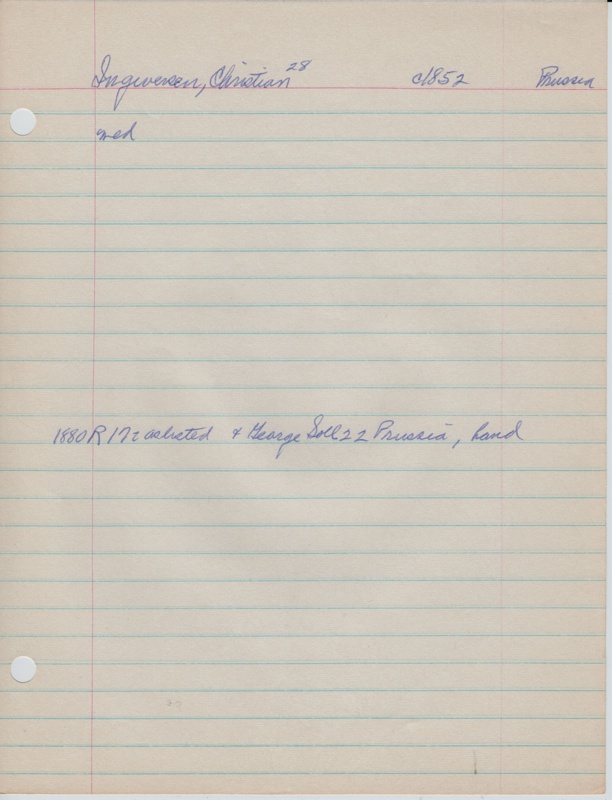 Ingwersen, Christian 28 c1852 Prussia
md
1880 R 172 as listed + George Soll 22 Prussia, hand